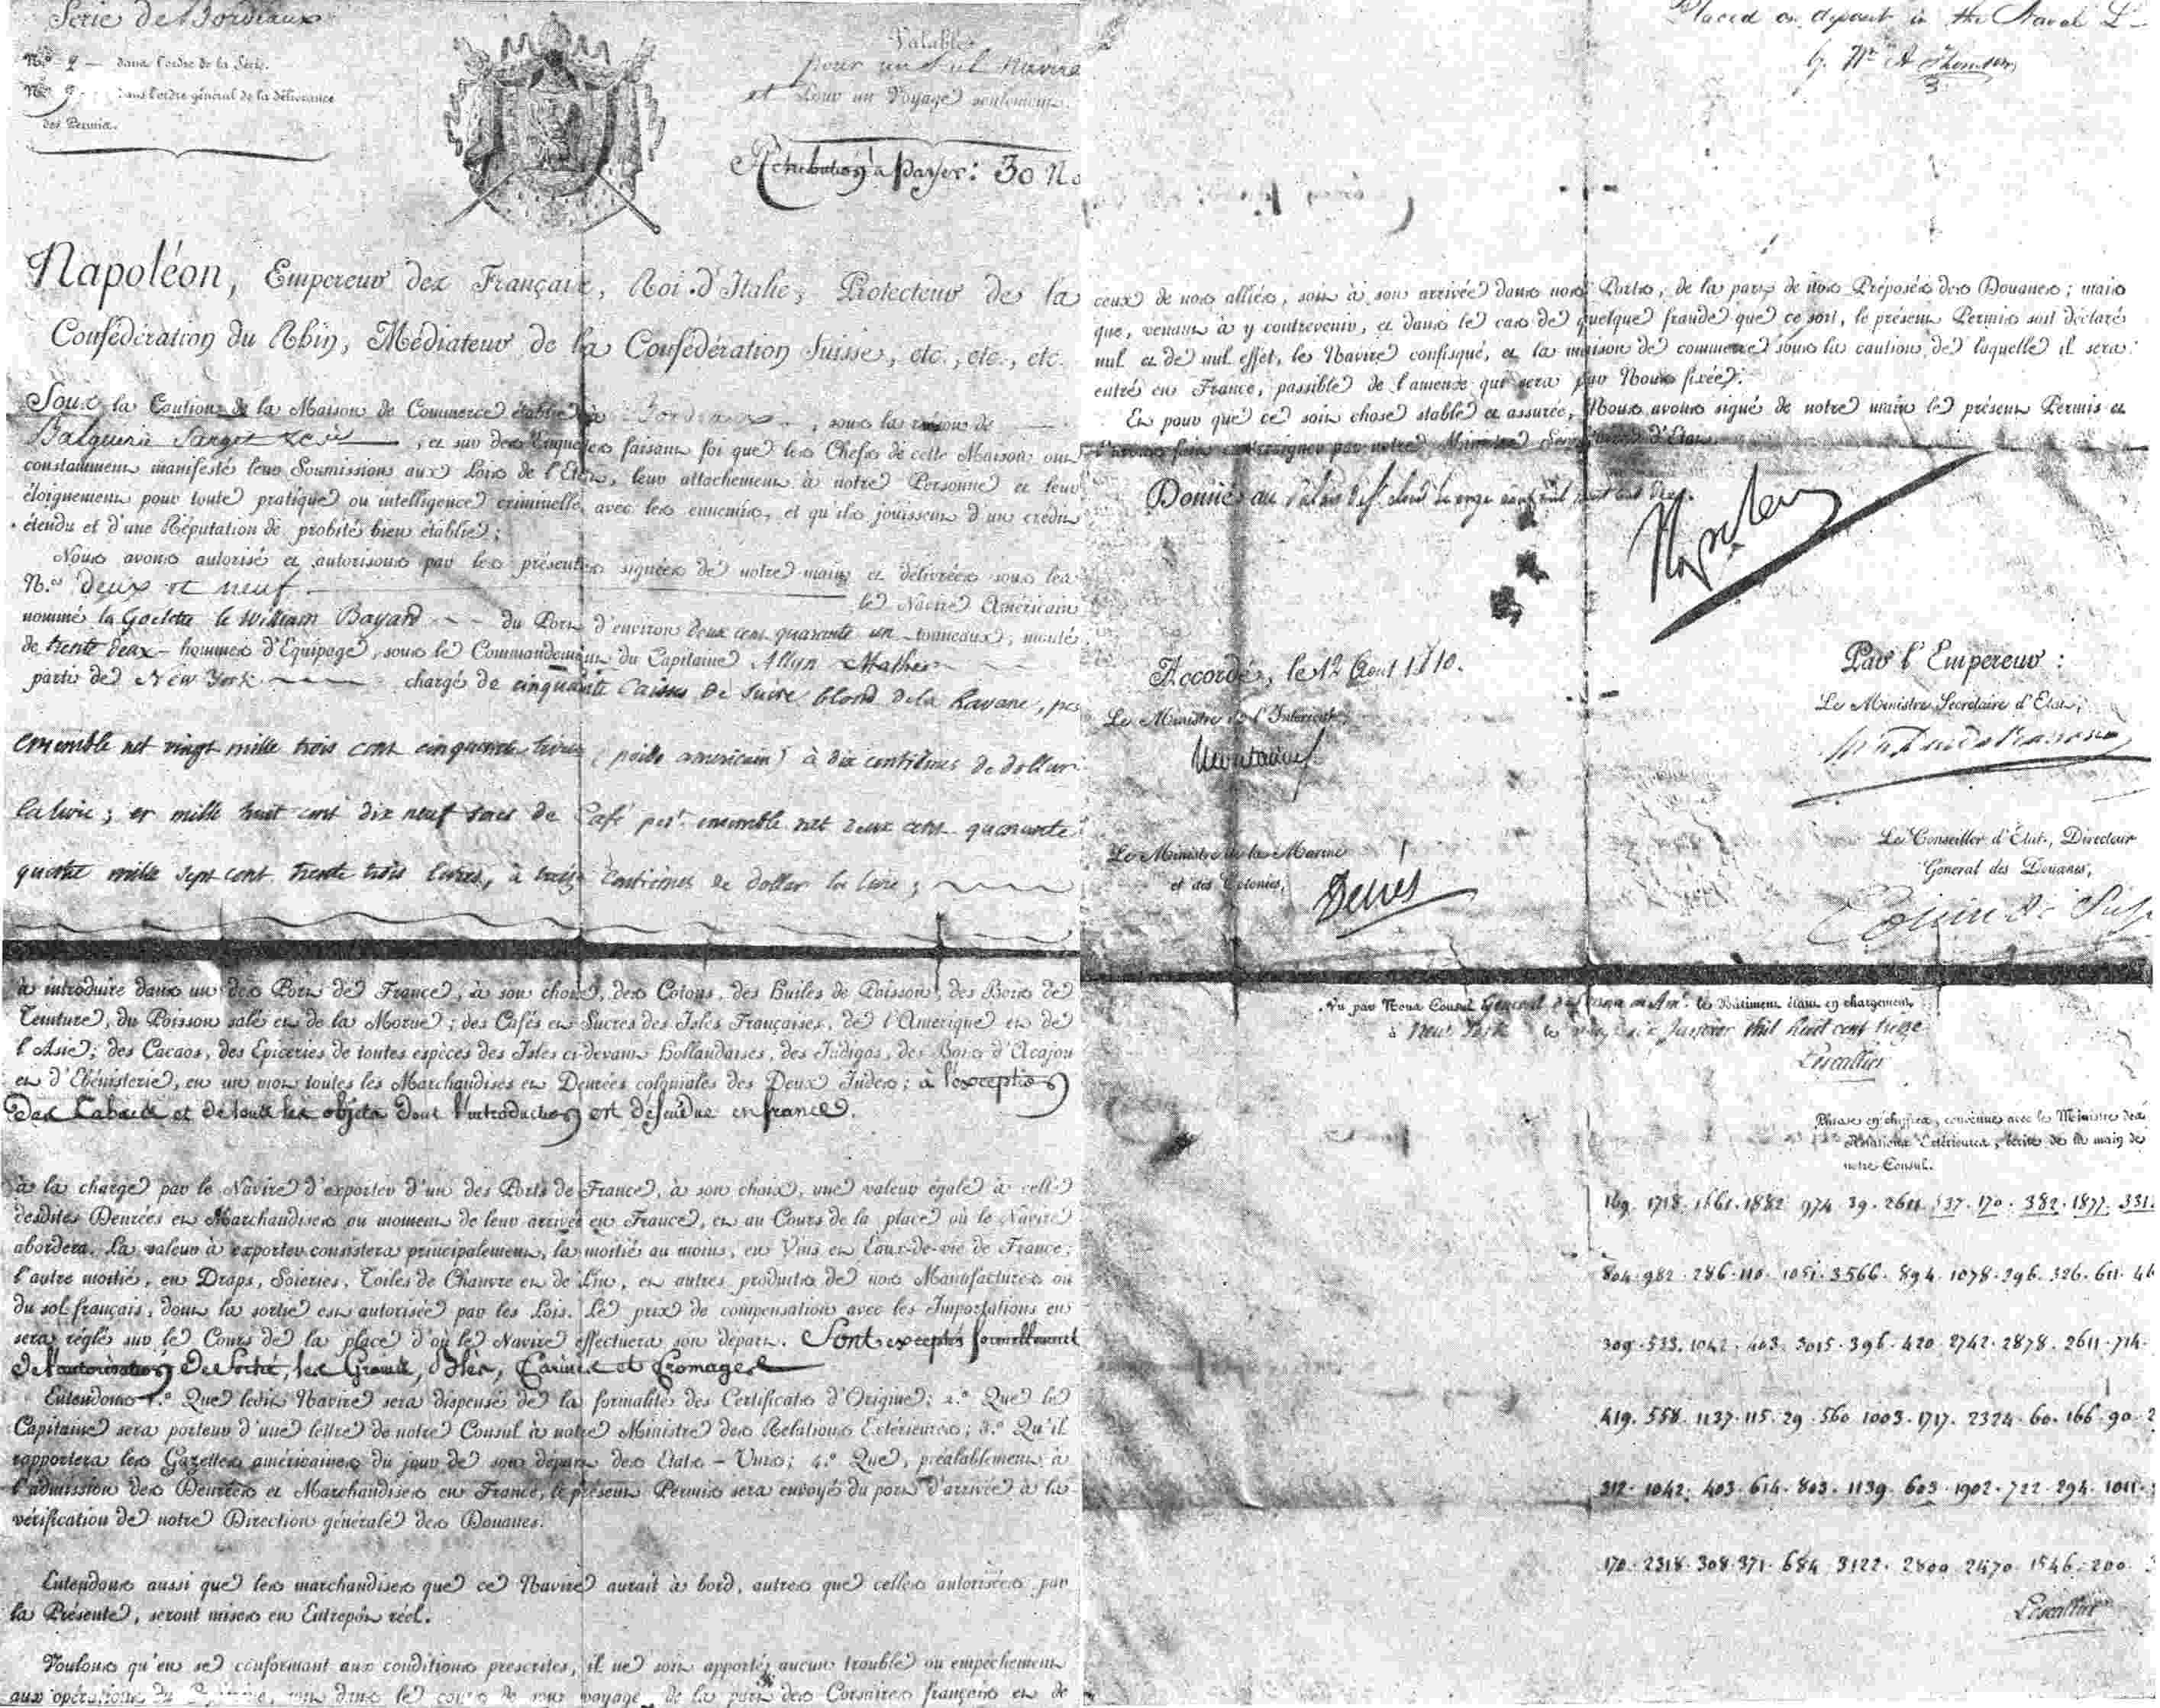 Serie de Bordeaux
N.º 2 — dans l'ordre de la Serie.
N.º 9 dans l'ordre général de la délivrance
des Permis.
Valable
pour un seul Navire
et pour un Voyage seulement.
Rétribution à payer: 30 No
Napoléon, Empereur des Français, Roi d'Italie, Protecteur de la
Confédération du Rhin, Médiateur de la Confédération Suisse, etc., etc., etc.
Sous la Caution de la Maison de Commerce établie à Bordeaux, sous la raison de
Balguerie Sarget, et sur des Enquêtes faisant foi que les Chefs de cette Maison ont
constamment manifesté leur Soumission aux Lois de l'Etat, leur attachement à notre Personne et leur
éloignement pour toute pratique ou intelligence criminelle avec les ennemis, et qu'ils jouissent d'un crédit
étendu et d'une Réputation de probité bien établie;
Nous avons autorisé et autorisons par les présentes signées de notre main et délivrées sous les
N.os deux et neuf le Navire Américain
nommé la Goelette le William Bayard du Port d'environ deux cent quarante un tonneaux, monté
de trente deux hommes d'Equipage, sous le Commandement du Capitaine Allyn Mather
parti de New York chargé de cinquante Caisses de Sucre blond de la havane, pes
ensemble net vingt mille trois cent cinquante livres (poids americain) à dix centièmes de dollar
la livre; et mille huit cent dix neuf sacs de Café pest ensemble net deux cent quarante
quatre mille sept cent trente trois livres, à treize Centièmes de dollar la livre;
à introduire dans un des Ports de France, à son choix, des Cotons, des Huiles de Poisson, des Bois de
Teinture, du Poisson salé et de la Morue; des Cafés et Sucres des Isles Françaises, de l'Amérique et de
l'Asie; des Cacaos, des Epiceries de toutes espèces des Isles ci-devant Hollandaises, des Indigos, des Bois d'Acajou
et d'Ebénisterie, en un mot toutes les Marchandises et Denrées coloniales des Deux Indes; à l'exception
des Tabacs et de tous les objets dont l'introduction est défendue en france.
à la charge par le Navire d'exporter d'un des Ports de France, à son choix, une valeur égale à celle
desdites Denrées et Marchandises au moment de leur arrivée en France, et au Cours de la place où le Navire
abordera. La valeur à exporter consistera principalement, la moitié au moins, en Vins et Eaux-de-vie de France;
l'autre moitié, en Draps, Soieries, Toiles de Chanvre et de Lin, et autres produits de nos Manufactures ou
du sol français, dont la sortie est autorisée par les Lois. Le prix de compensation avec les Importations en
sera réglé sur le Cours de la place d'où le Navire effectuera son départ. Sont exceptés formellement
de l'autorisation de Sortie, les Grains, Blés, Farines et Fromages
Entendons 1.º Que ledit Navire sera dispensé de la formalité des Certificats d'Origine; 2.º Que le
Capitaine sera porteur d'une lettre de notre Consul à notre Ministre des Relations Extérieures; 3.º Qu'il
rapportera les Gazettes américaines du jour de son départ des Etats-Unis; 4.º Que, préalablement à
l'admission des Denrées et Marchandises en France, le présent Permis sera envoyé du port d'arrivée à la
vérification de notre Direction générale des Douanes.
Entendons aussi que les marchandises que ce Navire aurait à bord, autres que celles autorisées par
la Présente, seront mises en Entrepôt réel.
Voulons qu'en se conformant aux conditions prescrites, il ne soit apporté aucun trouble ou empêchement
aux opérations du Navire, soit dans le cours de son voyage, de la part des Corsaires français et de
Placed on deposit in the Naval
by Wm A Thomson
ceux de nos alliés, soit à son arrivée dans nos Ports, de la part de nos Préposés des Douanes; mais
que, venant à y contrevenir, et dans le cas de quelque fraude que ce soit, le présent Permis soit déclaré
nul et de nul effet, le Navire confisqué, et la maison de commerce sous la caution de laquelle il sera
entré en France, passible de l'amende qui sera par Nous fixée.
Et pour que ce soit chose stable et assurée, Nous avons signé de notre main le présent Permis et
l'avons fait contresigner par notre Ministre Secrétaire d'Etat.
Donné au Palais de St. Cloud le onze
Accordé, le 12 Aout 1810.
Le Ministre de l'Intérieur,
Montalivet
Le Ministre de la Marine
et des Colonies,
Decrès
Par l'Empereur:
Le Ministre Secrétaire d'Etat,
Le Conseiller d'Etat, Directeur
General des Douanes,
Collin de Sus
Vu par Nous Consul Général de france en Amque le Bâtiment étant en chargement
à New York le vingt six Janvier Mil huit cent treize
Lescallier
Phrase en chiffres, convenue avec le Ministre des
Relations Extérieures, écrite de la main de
notre Consul.
169. 1718. 1661. 1882. 974. 39. 2611. 537. 170. 382. 1877. 331.
804. 982. 286. 110. 1051. 3566. 894. 1078. 396. 326. 611. 46
309. 533. 1042. 403. 3015. 396. 420. 2742. 2878. 2611. 714.
419. 558. 1137. 115. 29. 560. 1003. 1717. 2324. 60. 166. 90. 2
312. 1042. 403. 614. 803. 1139. 603. 1902. 722. 294. 1011.
170. 2318. 308. 371. 684. 3122. 2800. 2470. 1546. 200.
Lescallier